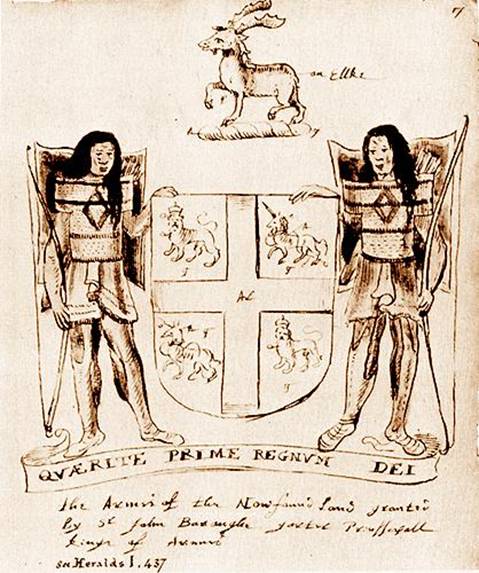 7
an Ellke
g
g
Ar
g
g
QVÆRITE PRIME REGNVM DEI
The Armes of the Newfound land granted
by Sr John Borough garter Principall
kinge of Armes
see Heralds 1. 437